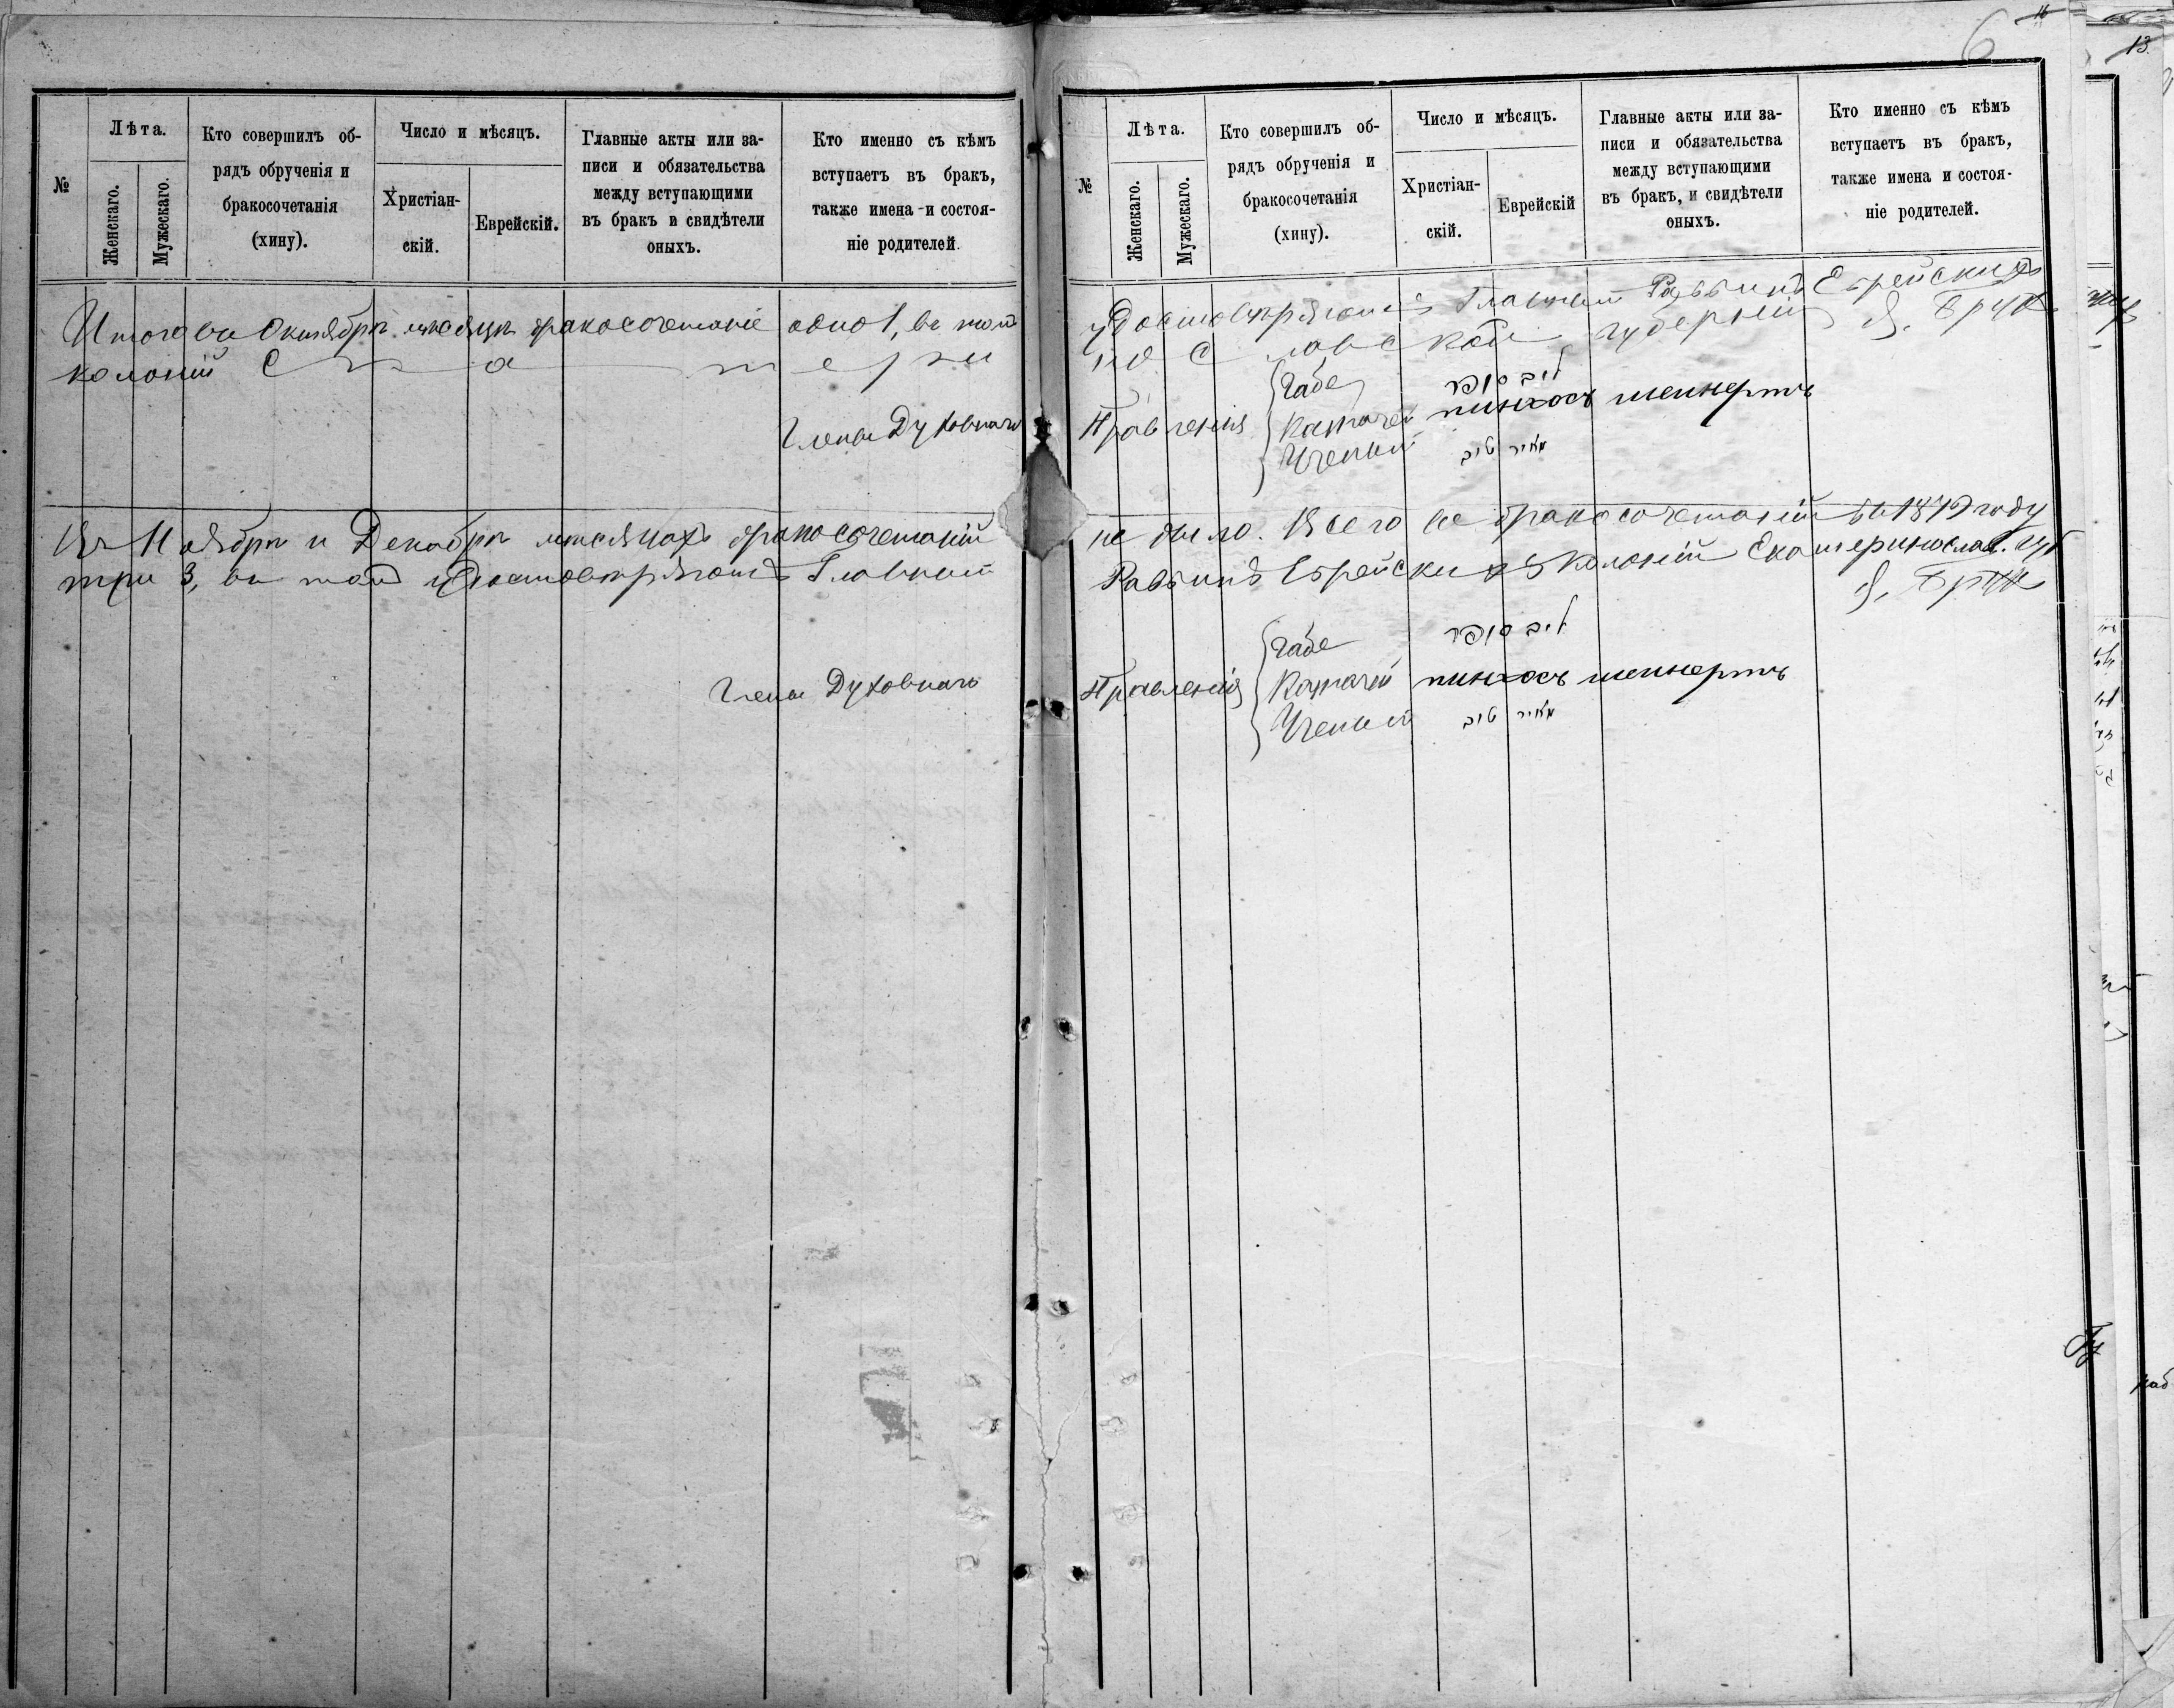 6 16
13.
№
Лѣта.
Женскаго.
Мужескаго.
Кто совершилъ об-
рядъ обрученія и
бракосочетанія
(хину).
Число и мѣсяцъ.
Христіан-
скій.
Еврейскій.
Главные акты или за-
писи и обязательства
между вступающими
въ бракъ и свидѣтели
оныхъ.
Кто именно съ кѣмъ
вступаетъ въ бракъ,
также имена и состоя-
ніе родителей.
№
Лѣта.
Женскаго.
Мужескаго.
Кто совершилъ об-
рядъ обрученія и
бракосочетанія
(хину).
Число и мѣсяцъ.
Христіан-
скій.
Еврейскій
Главные акты или за-
писи и обязательства
между вступающими
въ бракъ, и свидѣтели
оныхъ.
Кто именно съ кѣмъ
вступаетъ въ бракъ,
также имена и состоя-
ніе родителей.
Итого въ Октябрѣ мѣсяцѣ бракосочетаніе одно 1, въ томъ удостовѣряютъ Главный Раввинъ Еврейскихъ
колоній Екатериносlавской губерніи Я. Брукъ
Члены Духовнаго Правленія
Габе ליב סופר
Казначей пинхосъ шейнертъ
Ученый מאיר טיב
Въ Ноябрѣ и Декабрѣ мѣсяцахъ бракосочетаній не было. Всего же бракосочетаній въ 1879 году
три 3, въ томъ удостовѣряютъ Главный Раввинъ Еврейскихъ Колоній Екатеринослав. губ
Я. Брукъ
Члены Духовнаго Правленія
Габе ליב סופר
Казначей пинхосъ шейнертъ
Ученый מאיר טיב